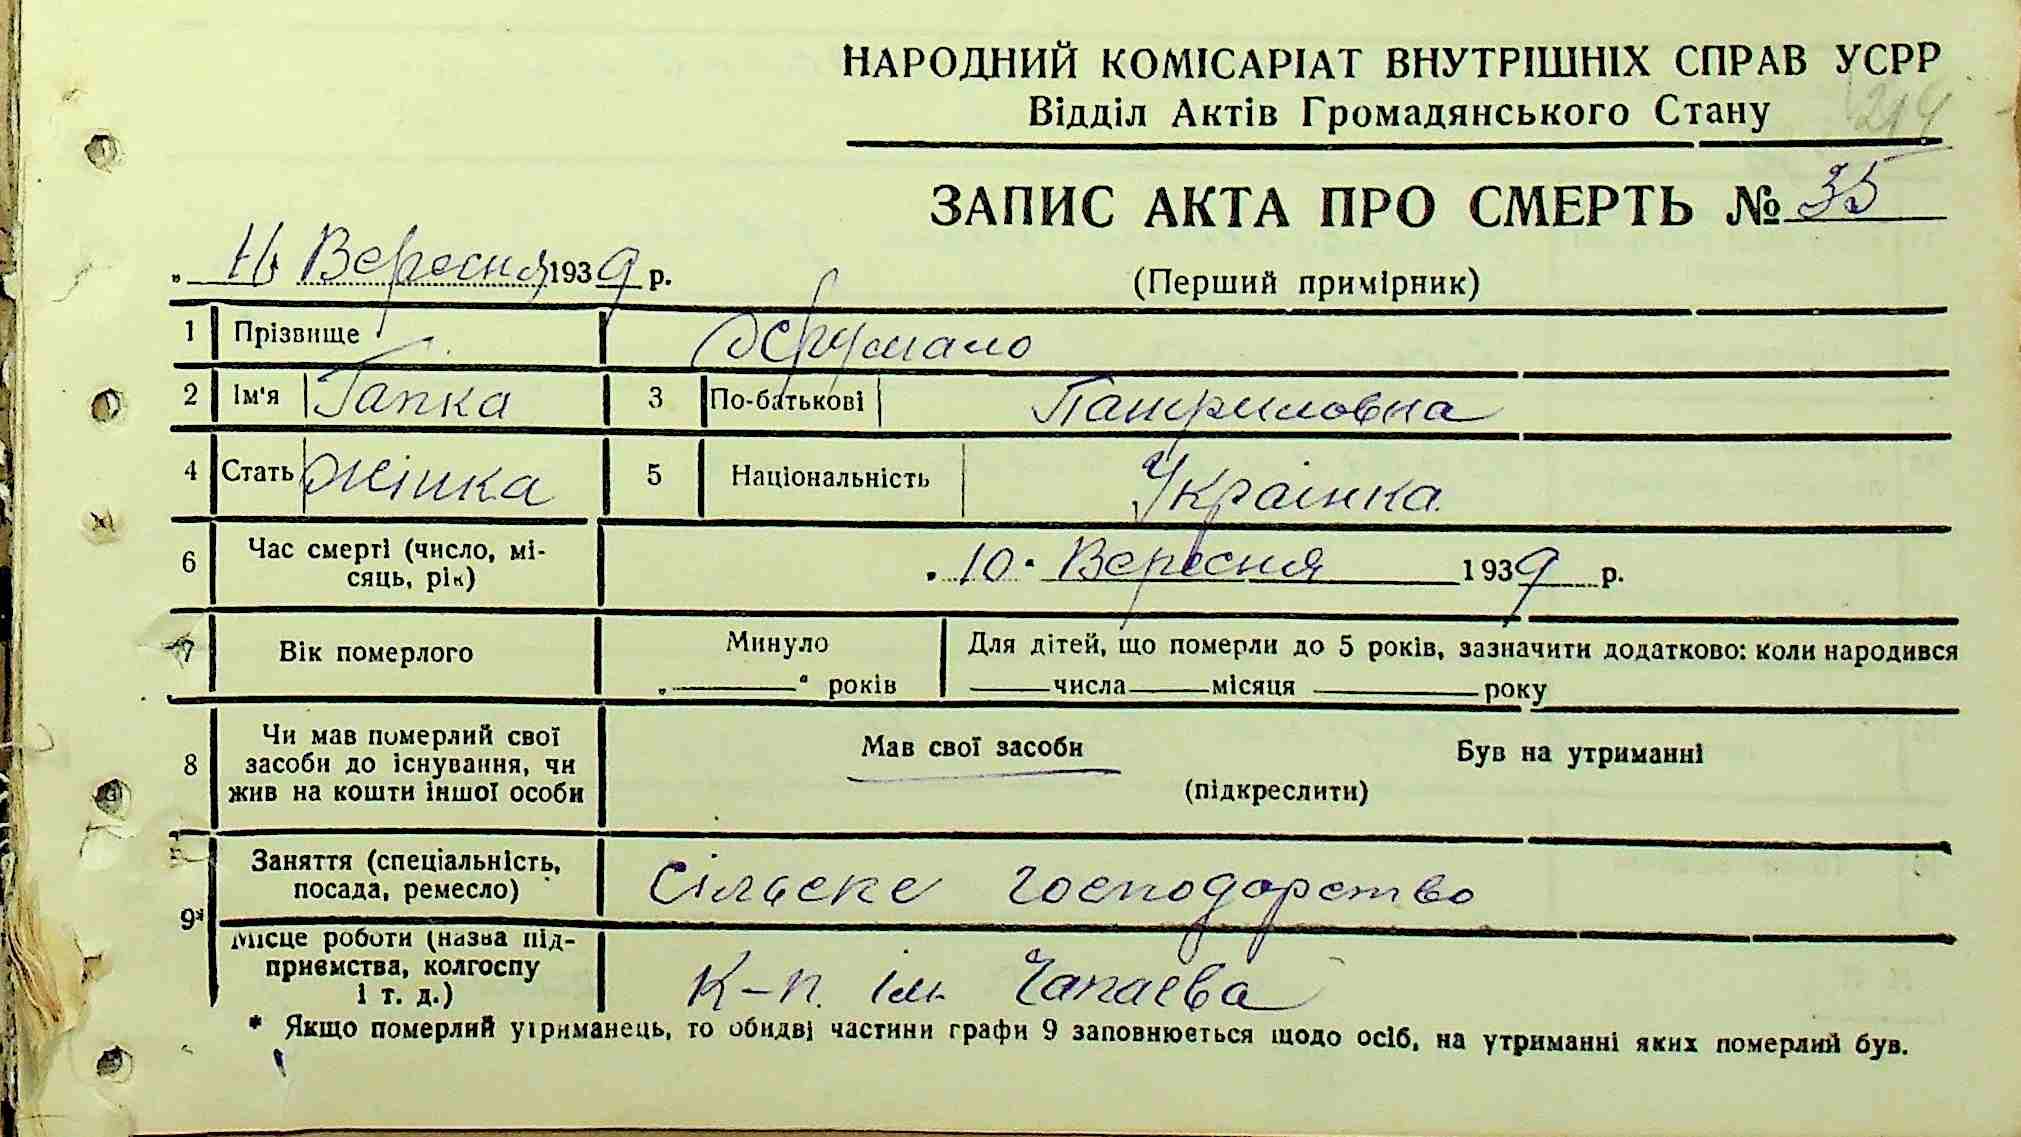 НАРОДНИЙ КОМІСАРІАТ ВНУТРІШНІХ СПРАВ УСРР
Відділ Актів Громадянського Стану
214
ЗАПИС АКТА ПРО СМЕРТЬ № 35
„ 11 Вересня 1939 р.
(Перший примірник)
1 Прізвище
2 Ім'я Гапка 3 По-батькові
4 Стать жінка 5 Національність Українка
6 Час смерті (число, мі-
сяць, рік) „ 10 " Вересня 1939 р.
7 Вік померлого Минуло Для дітей, що померли до 5 років, зазначити додатково: коли народився
„ " років числа місяця року
8 Чи мав померлий свої
засоби до існування, чи
жив на кошти іншої особи Мав свої засоби Був на утриманні
(підкреслити)
9* Заняття (спеціальність,
посада, ремесло) Сільске господарство
Місце роботи (назва під-
приємства, колгоспу
і т. д.) К-п. ім. Чапаєва
* Якщо померлий утриманець, то обидві частини графи 9 заповнюється щодо осіб, на утриманні яких померлий був.